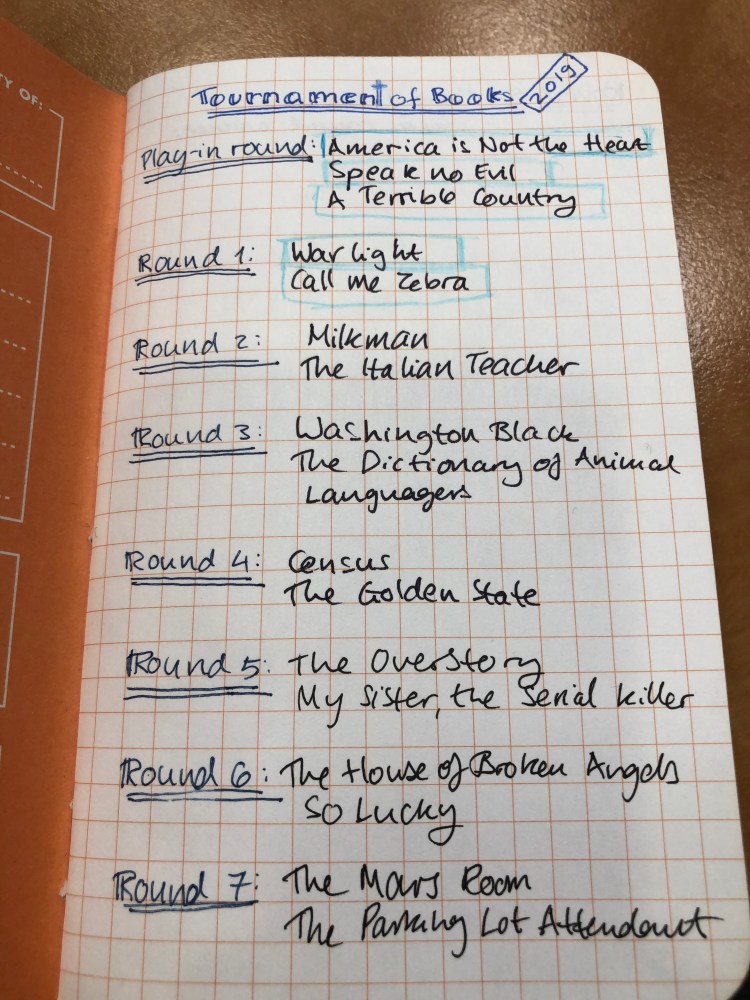 TY OF:
Tournament of Books 2019
Play-in round: America is Not the Heart
Speak no Evil
A Terrible Country
Round 1: War light
Call me Zebra
Round 2: Milkman
The Italian Teacher
Round 3: Washington Black
The Dictionary of Animal
Languagers
Round 4: Census
The Golden State
Round 5: The Overstory
My Sister, the Serial killer
Round 6: The House of Broken Angels
So Lucky
Round 7: The Mars Room
The Parking Lot Attendant